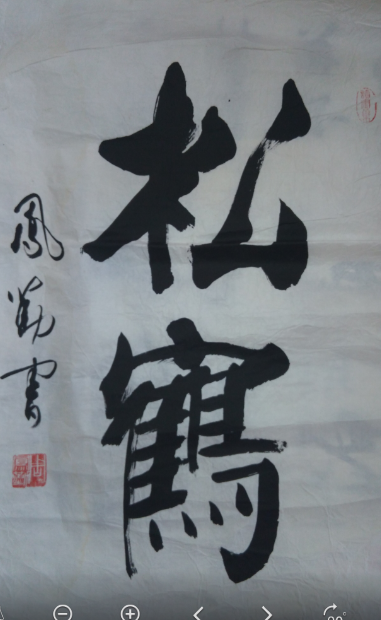 松鶴
鳳勤書